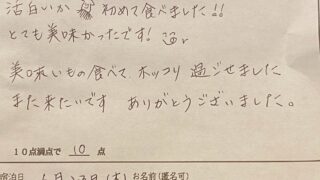 活白いか 初めて食べました!!
とても美味かったです!
美味いもの食べて、ホッコリ 過ごせました
また来たいです ありがとうございました。
10点満点で 10 点
宿泊日 6月23日(木) お名前(匿名可)